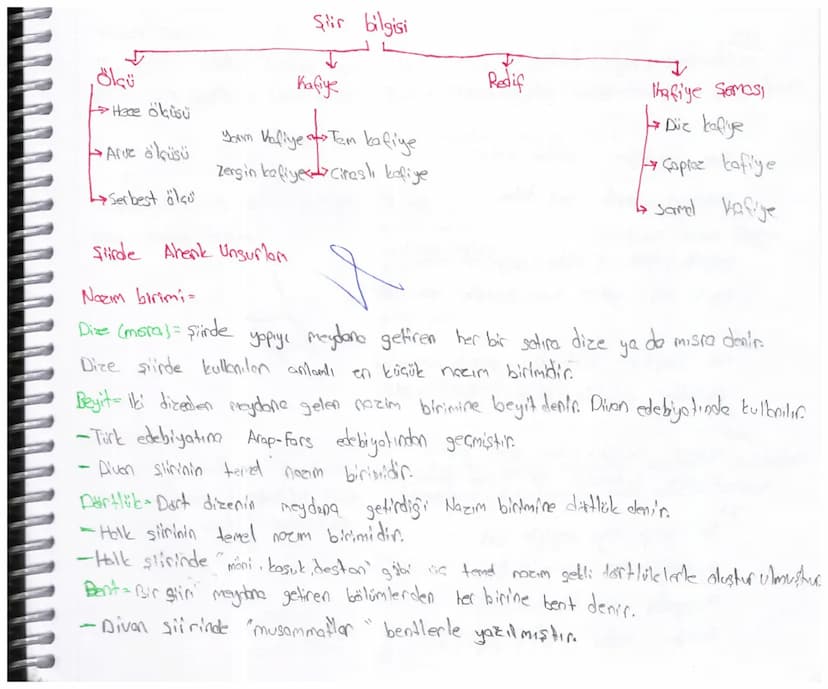 Şiir bilgisi
Ölçü Kafiye Redif Kafiye Şeması
Hece ölçüsü
Aruz ölçüsü
Serbest ölçü
Yarım Kafiye Tam kafiye
Zengin kafiye Cinaslı kafiye
Düz kafiye
Çapraz kafiye
Sarmal kafiye
Şiirde Ahenk Unsurları
Nazım birimi=
Dize (mısra)= Şiirde yapıyı meydana getiren her bir satıra dize ya da mısra denir.
Dize şiirde kullanılan anlamlı en küçük nazım birimidir.
Beyit= İki dizeden meydana gelen nazım birimine beyit denir. Divan edebiyatında kullanılır.
- Türk edebiyatına Arap-Fars edebiyatından geçmiştir.
- Divan şiirinin temel nazım birimidir.
Dörtlük= Dört dizenin meydana getirdiği Nazım birimine dörtlük denir.
- Halk şiirinin temel nazım birimidir.
- Halk şiirinde "mani, koşuk, destan" gibi üç temel nazım şekli dörtlüklerle oluşturulmuştur.
Bent= Bir şiiri meydana getiren bölümlerden her birine bent denir.
- Divan şiirinde "musammatlar" bentlerle yazılmıştır.